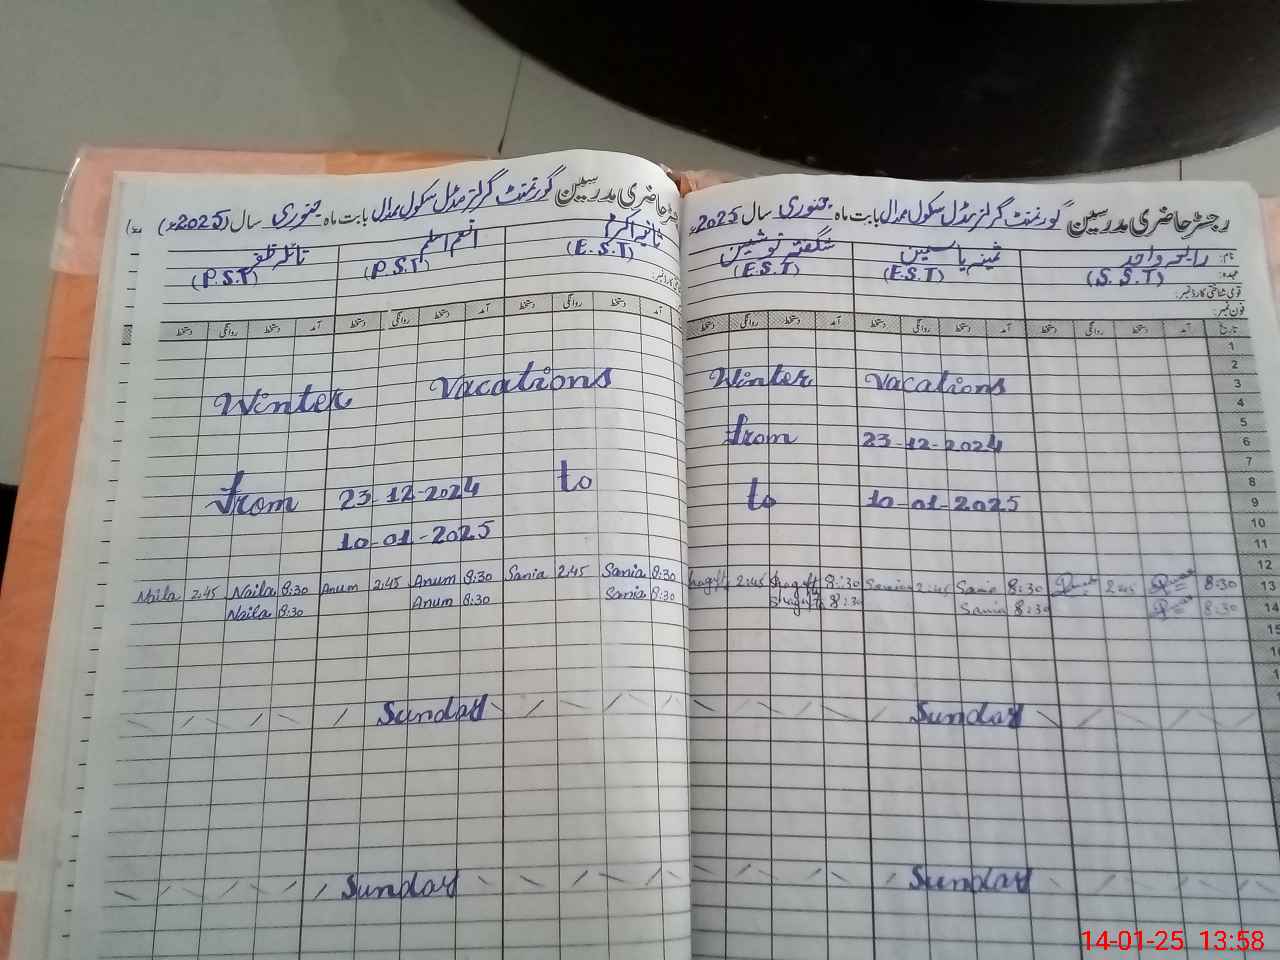 رجسٹر حاضری مدرسین گورنمنٹ گرلز مڈل سکول ممدال بابت ماہ جنوری سال 2025ء
نام: رابعہ واحد ثمینہ یاسمین شگفتہ نوشین
عہدہ: (S.S.T) (E.S.T) (E.S.T)
قومی شناختی کارڈ نمبر:
فون نمبر:
تاریخ آمد دستخط روانگی دستخط آمد دستخط روانگی دستخط آمد دستخط روانگی دستخط
1
2
Winter Vacations 3
4
5
from 23-12-2024 6
7
8
to 10-01-2025 9
10
11
12
Shagufta 2:45 Shagufta 8:30 Samina 2:45 Samina 8:30 2:45 8:30 13
Shagufta 8:30 Samina 8:30 8:30 14
15
Sunday
Sunday
حاضری مدرسین گورنمنٹ گرلز مڈل سکول ممدال بابت ماہ جنوری سال (2025ء)
ثانیہ اکرم انعم اسلم نائلہ ظفر
(E.S.T) (P.S.T) (P.S.T)
آمد دستخط روانگی دستخط آمد دستخط روانگی دستخط آمد دستخط روانگی دستخط
Winter Vacations
from 23-12-2024 to
10-01-2025
Naila 2:45 Naila 8:30 Anum 2:45 Anum 8:30 Sania 2:45 Sania 8:30
Naila 8:30 Anum 8:30 Sania 8:30
Sunday
Sunday
14-01-25 13:58